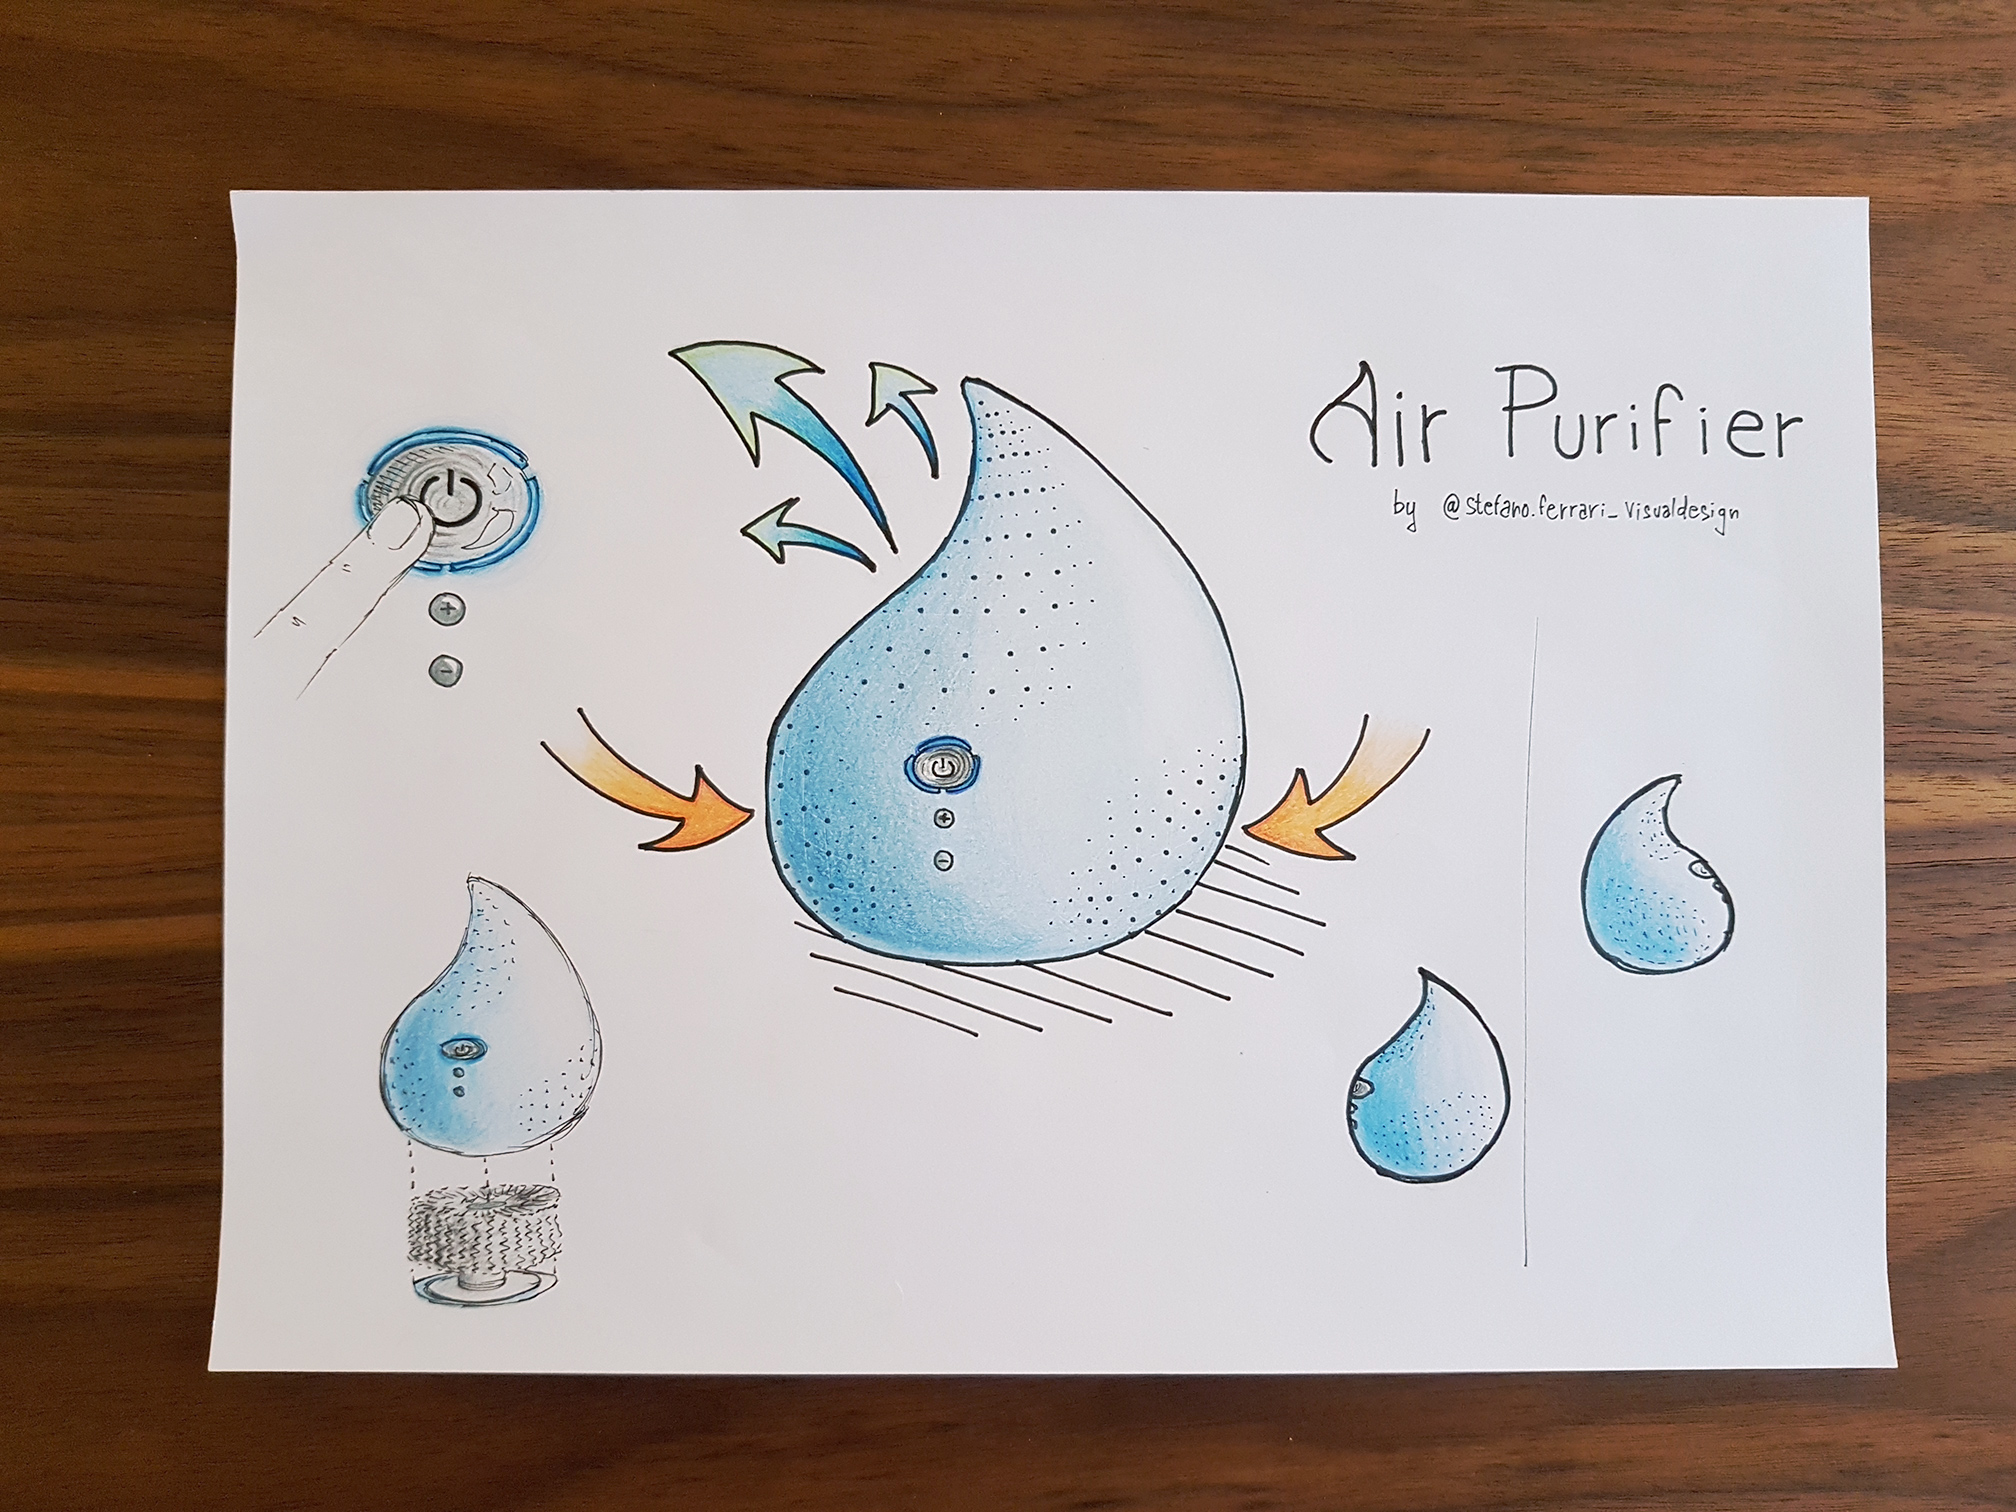 Air Purifier
by @stefano.ferrari_visualdesign
+
-
+
-